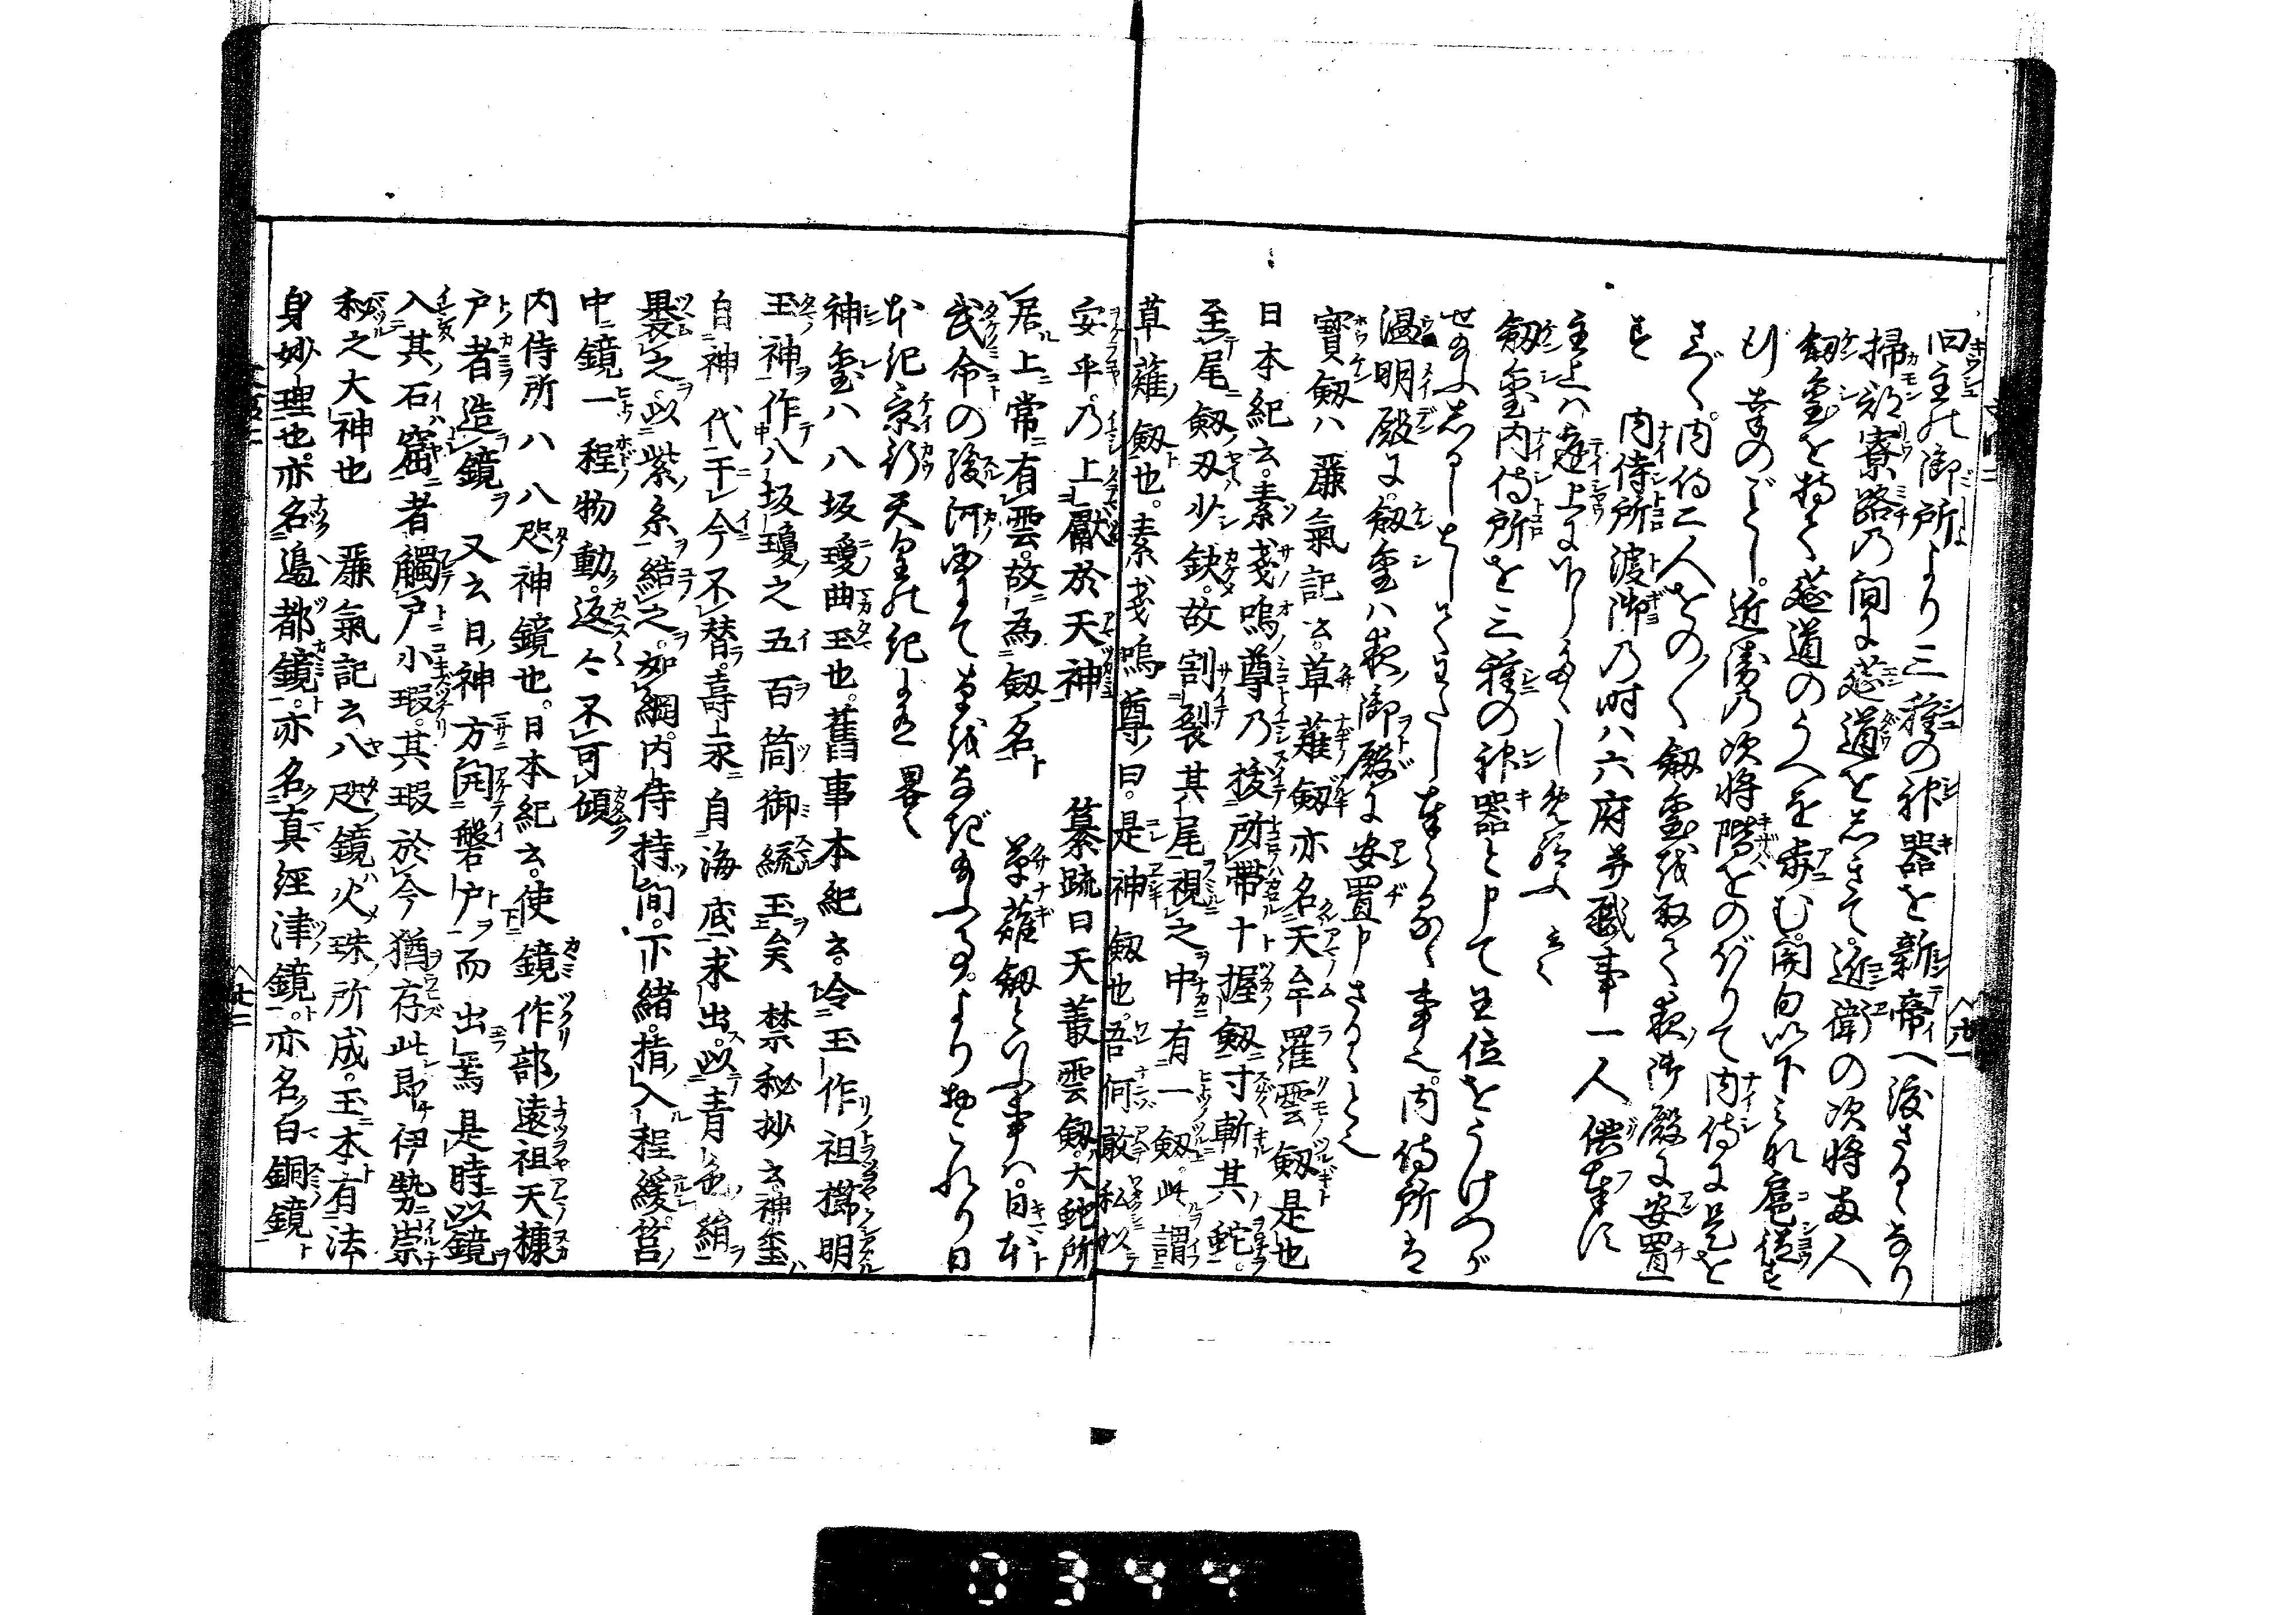 旧主の御所より三種の神器を新帝へ渡さるゝなり
掃部寮路乃間に莚道をしきて近衛の次将両人
劔璽を持て莚道のうへを歩む関白以下みな扈従す
行幸のごとし近衛乃次将階をのぼりて内侍に是を
さづく内侍二人をの〱劔璽を取て夜御殿に安置
す 内侍所渡御乃時ハ六府并職事一人供奉に
主上ハ庭上に
劔璽内侍所を三種の神器と申て王位をうけつが
せ
温明殿に劔璽ハ夜御殿に安置申さるゝと也
寶劔ハ麗氣記云草薙劔亦名天叢雲劔是也
日本紀云素戔嗚尊乃抜所帯十握劔寸斬其蛇
至尾劔刃少缺故割裂其尾視之中有一劔此謂
草薙劔也素戔嗚尊曰是神劔也吾何敢私以
安乎乃上獻於天神 纂疏曰天叢雲劔大蛇所
居上常有雲故為劔名 草薙劔といふ事ハ日本
武命の駿河にて草をなぎ給ふ より おこれり日
本紀景行天皇の紀に 畧之
神璽ハ八坂瓊曲玉也舊事本紀云令玉作祖櫛明
玉神作八坂瓊之五百筒御統玉矣 禁秘抄云神璽
自神代于今不替壽永自海底求出以青色絹
裹之以紫糸結之如綱内侍持間下緒指入程緩筥
中鏡一程物動返々不可傾
内侍所ハ八咫神鏡也日本紀云使鏡作部遠祖天糠
戸者造鏡 又云日神方開磐戸而出焉是時以鏡
入其石窟者觸戸小瑕其瑕於今猶存此即伊勢崇
秘之大神也 麗氣記云八咫鏡火珠所成玉本有法
身妙理也亦名邉都鏡亦名真經津鏡亦名白銅鏡